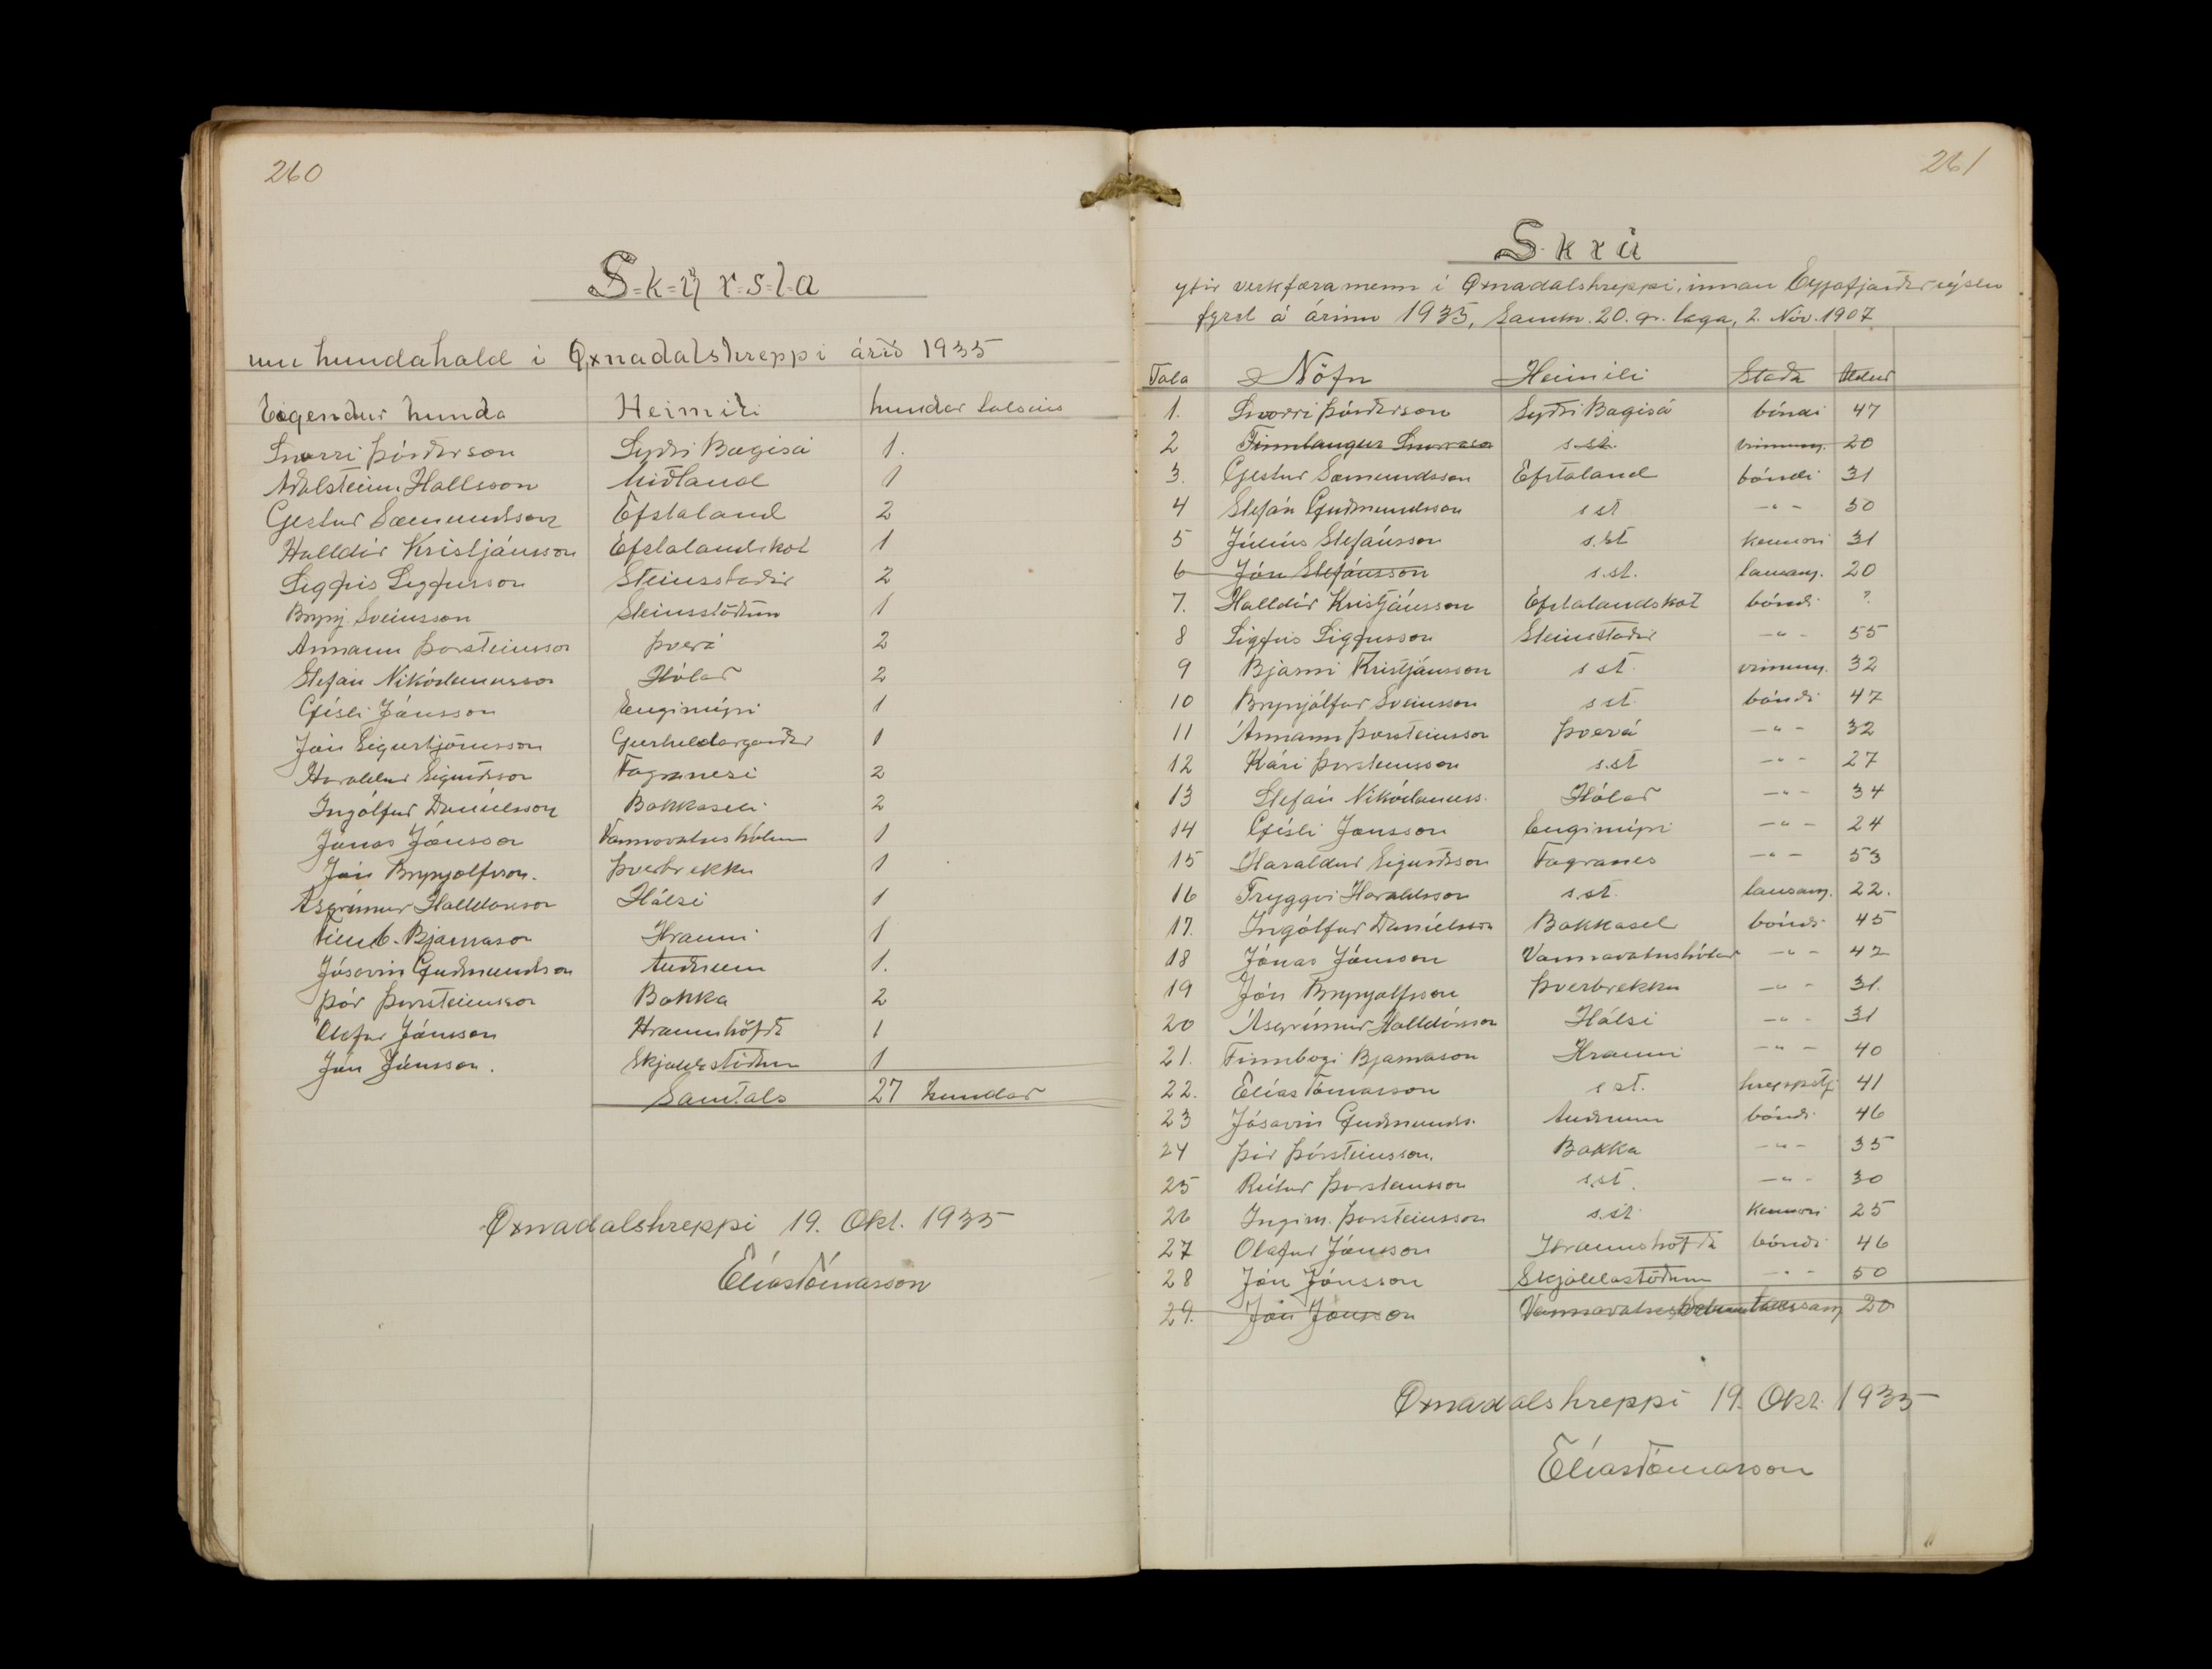 260
S-k-ý-r-s-l-a
um hundahald i Öxnadalshreppi árið 1935
Eigendur hunda Heimili hundar talsins
Snorri Þórðarson Syðri Bægisá 1.
Aðalsteinn Hallsson Miðland 1
Gestur Sæmundsson Efstaland 2
Halldór Kristjánsson Efstalandskot 1
Sigfús Sigfússon Steinsstaðir 2
Brynj. Sveinsson Steinsstöðum 1
Ármann Þorsteinsson Þverá 2
Stefán Nikódemusson Hólar 2
Gísli Jónsson Engimýri 1
Jón Sigurbjörnsson Geirhildargarðar 1
Haraldur Sigurðsson Fagranesi 2
Ingólfur Daníelsson Bakkaseli 2
Jónas Jónsson Vannavatnshólum 1
Jón Brynjólfsson. Þverbrekku 1
Ásgrímur Halldórsson Hálsi 1
Finnb. Bjarnason Hrauni 1
Jósavin Guðmundsson Auðnum 1.
Þór Þorsteinsson Bakka 2
Ólafur Jónsson Hraunshöfða 1
Jón Jónsson. Skjaldastöðum 1
Samtals 27 hundar
Öxnadalshreppi 19. Okt. 1935
Elías Tómasson
261
Skrá
yfir verkfæra menn í Öxnadalshreppi, innan Eyjafjarðarsýslu
fyrst á árinu 1935, Samkv. 20. gr. laga, 2. Nóv. 1907
Tala Nöfn Heimili Staða Aldur
1. Snorri Þórðarson Syðri Bægisá bóndi 47
2 Finnlaugur Snorrason s.st. vinnum. 20
3. Gestur Sæmundsson Efstaland bóndi 31
4 Stefán Guðmundsson s st -"- 50
5 Júlíus Stefánsson s.st kennari 31
6 Jón Stefánsson s.st. lausam. 20
7. Halldór Kristjánsson Efstalandskot bóndi ?
8 Sigfús Sigfússon Steinsstaðir -"- 55
9 Bjarni Kristjánsson s st. vinnum. 32
10 Brynjólfur Sveinsson s st. bóndi 47
11 Ármann Þorsteinsson Þverá -"- 32
12 Kári Þorsteinsson s.st -"- 27
13 Stefán Nikódemuss. Hólar -"- 34
14 Gísli Jónsson Engimýri -"- 24
15 Haraldur Sigurðsson Fagranes -"- 53
16 Tryggvi Haraldsson s.st. lausam. 22.
17. Ingólfur Daníelsson Bakkasel bóndi 45
18 Jónas Jónsson Vannavatnshólar -"- 42
19 Jón Brynjólfsson Þverbrekku -"- 31.
20 Ásgrímur Halldórsson Hálsi -"- 31
21. Finnbogi Bjarnason Hrauni -"- 40
22. Elías Tómasson s st. hreppstj. 41
23 Jósavin Guðmunds. Auðnum bóndi 46
24 Þór Þorsteinsson. Bakka -"- 35
25 Rútur Þorsteinsson s.st. -"- 30
26 Ingim. Þorsteinsson s.st. kennari 25
27 Ólafur Jónsson Hraunshöfða bóndi 46
28 Jón Jónsson Skjaldastöðum -"- 50
29. Jón Jónsson Vannavatnshólum lausam 20
Öxnadalshreppi 19. Okt. 1935
Elías Tómasson